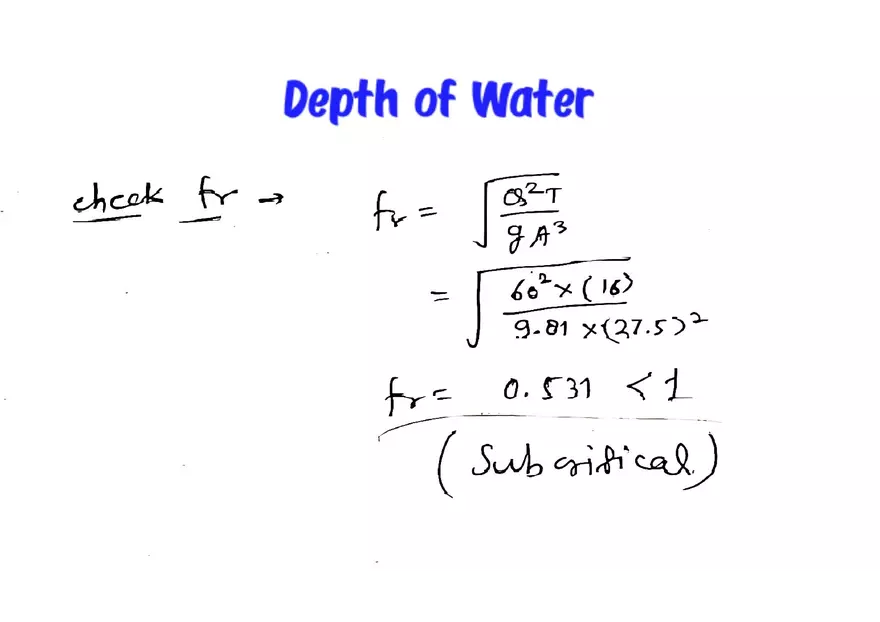 Depth of Water
check fr →
fr = √(Q²T / gA³)
= √(60² × (16) / 9.81 × (27.5)²)
fr = 0.531 < 1
(Subcritical)